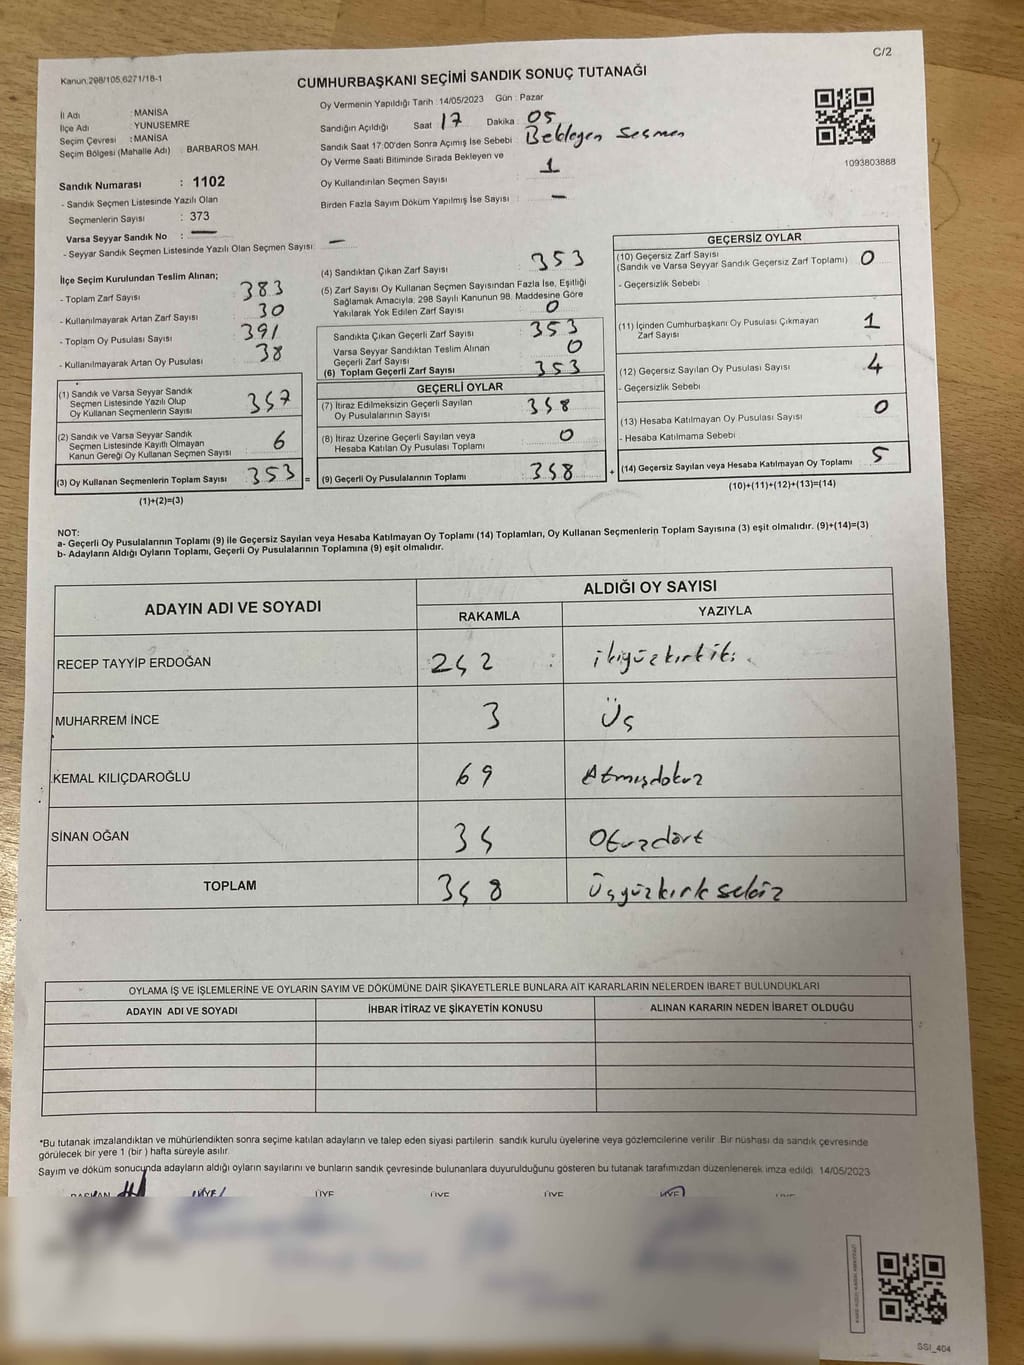 Kanun:298/105,6271/18-1
C/2
CUMHURBAŞKANI SEÇİMİ SANDIK SONUÇ TUTANAĞI
İl Adı : MANİSA
İlçe Adı : YUNUSEMRE
Seçim Çevresi : MANİSA
Seçim Bölgesi (Mahalle Adı) BARBAROS MAH.
Sandık Numarası : 1102
- Sandık Seçmen Listesinde Yazılı Olan
Seçmenlerin Sayısı : 373
Varsa Seyyar Sandık No : —
- Seyyar Sandık Seçmen Listesinde Yazılı Olan Seçmen Sayısı: —
Oy Vermenin Yapıldığı Tarih :14/05/2023 Gün : Pazar
Sandığın Açıldığı Saat 17 Dakika 05
Sandık Saat 17:00'den Sonra Açımış İse Sebebi Bekleyen Seçmen
Oy Verme Saati Bitiminde Sırada Bekleyen ve
Oy Kullandırılan Seçmen Sayısı : 1
Birden Fazla Sayım Döküm Yapılmış İse Sayısı : —
1093803888
İlçe Seçim Kurulundan Teslim Alınan;
- Toplam Zarf Sayısı 383
- Kullanılmayarak Artan Zarf Sayısı 30
- Toplam Oy Pusulası Sayısı 391
- Kullanılmayarak Artan Oy Pusulası 38
(1) Sandık ve Varsa Seyyar Sandık
Seçmen Listesinde Yazılı Olup
Oy Kullanan Seçmenlerin Sayısı 347
(2) Sandık ve Varsa Seyyar Sandık
Seçmen Listesinde Kayıtlı Olmayan
Kanun Gereği Oy Kullanan Seçmen Sayısı 6
(3) Oy Kullanan Seçmenlerin Toplam Sayısı 353
(1)+(2)=(3)
(4) Sandıktan Çıkan Zarf Sayısı 353
(5) Zarf Sayısı Oy Kullanan Seçmen Sayısından Fazla İse, Eşitliği
Sağlamak Amacıyla, 298 Sayılı Kanunun 98. Maddesine Göre
Yakılarak Yok Edilen Zarf Sayısı 0
Sandıkta Çıkan Geçerli Zarf Sayısı 353
Varsa Seyyar Sandıktan Teslim Alınan
Geçerli Zarf Sayısı 0
(6) Toplam Geçerli Zarf Sayısı 353
GEÇERLİ OYLAR
(7) İtiraz Edilmeksizin Geçerli Sayılan
Oy Pusulalarının Sayısı 348
(8) İtiraz Üzerine Geçerli Sayılan veya
Hesaba Katılan Oy Pusulası Toplamı 0
= (9) Geçerli Oy Pusulalarının Toplamı 348 +
GEÇERSİZ OYLAR
(10) Geçersiz Zarf Sayısı
(Sandık ve Varsa Seyyar Sandık Geçersiz Zarf Toplamı) 0
- Geçersizlik Sebebi
(11) İçinden Cumhurbaşkanı Oy Pusulası Çıkmayan
Zarf Sayısı 1
(12) Geçersiz Sayılan Oy Pusulası Sayısı 4
- Geçersizlik Sebebi
(13) Hesaba Katılmayan Oy Pusulası Sayısı 0
- Hesaba Katılmama Sebebi
(14) Geçersiz Sayılan veya Hesaba Katılmayan Oy Toplamı 5
(10)+(11)+(12)+(13)=(14)
NOT:
a- Geçerli Oy Pusulalarının Toplamı (9) ile Geçersiz Sayılan veya Hesaba Katılmayan Oy Toplamı (14) Toplamları, Oy Kullanan Seçmenlerin Toplam Sayısına (3) eşit olmalıdır. (9)+(14)=(3)
b- Adayların Aldığı Oyların Toplamı, Geçerli Oy Pusulalarının Toplamına (9) eşit olmalıdır.
ADAYIN ADI VE SOYADI
ALDIĞI OY SAYISI
RAKAMLA YAZIYLA
RECEP TAYYİP ERDOĞAN 242 ikiyüzkırkiki
MUHARREM İNCE 3 Üç
KEMAL KILIÇDAROĞLU 69 Atmışdokuz
SİNAN OĞAN 34 Otuzdört
TOPLAM 348 Üçyüzkırk sekiz
OYLAMA İŞ VE İŞLEMLERİNE VE OYLARIN SAYIM VE DÖKÜMÜNE DAİR ŞİKAYETLERLE BUNLARA AİT KARARLARIN NELERDEN İBARET BULUNDUKLARI
ADAYIN ADI VE SOYADI İHBAR İTİRAZ VE ŞİKAYETİN KONUSU ALINAN KARARIN NEDEN İBARET OLDUĞU
*Bu tutanak imzalandıktan ve mühürlendikten sonra seçime katılan adayların ve talep eden siyasi partilerin sandık kurulu üyelerine veya gözlemcilerine verilir. Bir nüshası da sandık çevresinde
görülecek bir yere 1 (bir ) hafta süreyle asılır.
Sayım ve döküm sonucunda adayların aldığı oyların sayılarını ve bunların sandık çevresinde bulunanlara duyurulduğunu gösteren bu tutanak tarafımızdan düzenlenerek imza edildi. 14/05/2023
BAŞKAN ÜYE ÜYE ÜYE ÜYE ÜYE
SSI_404